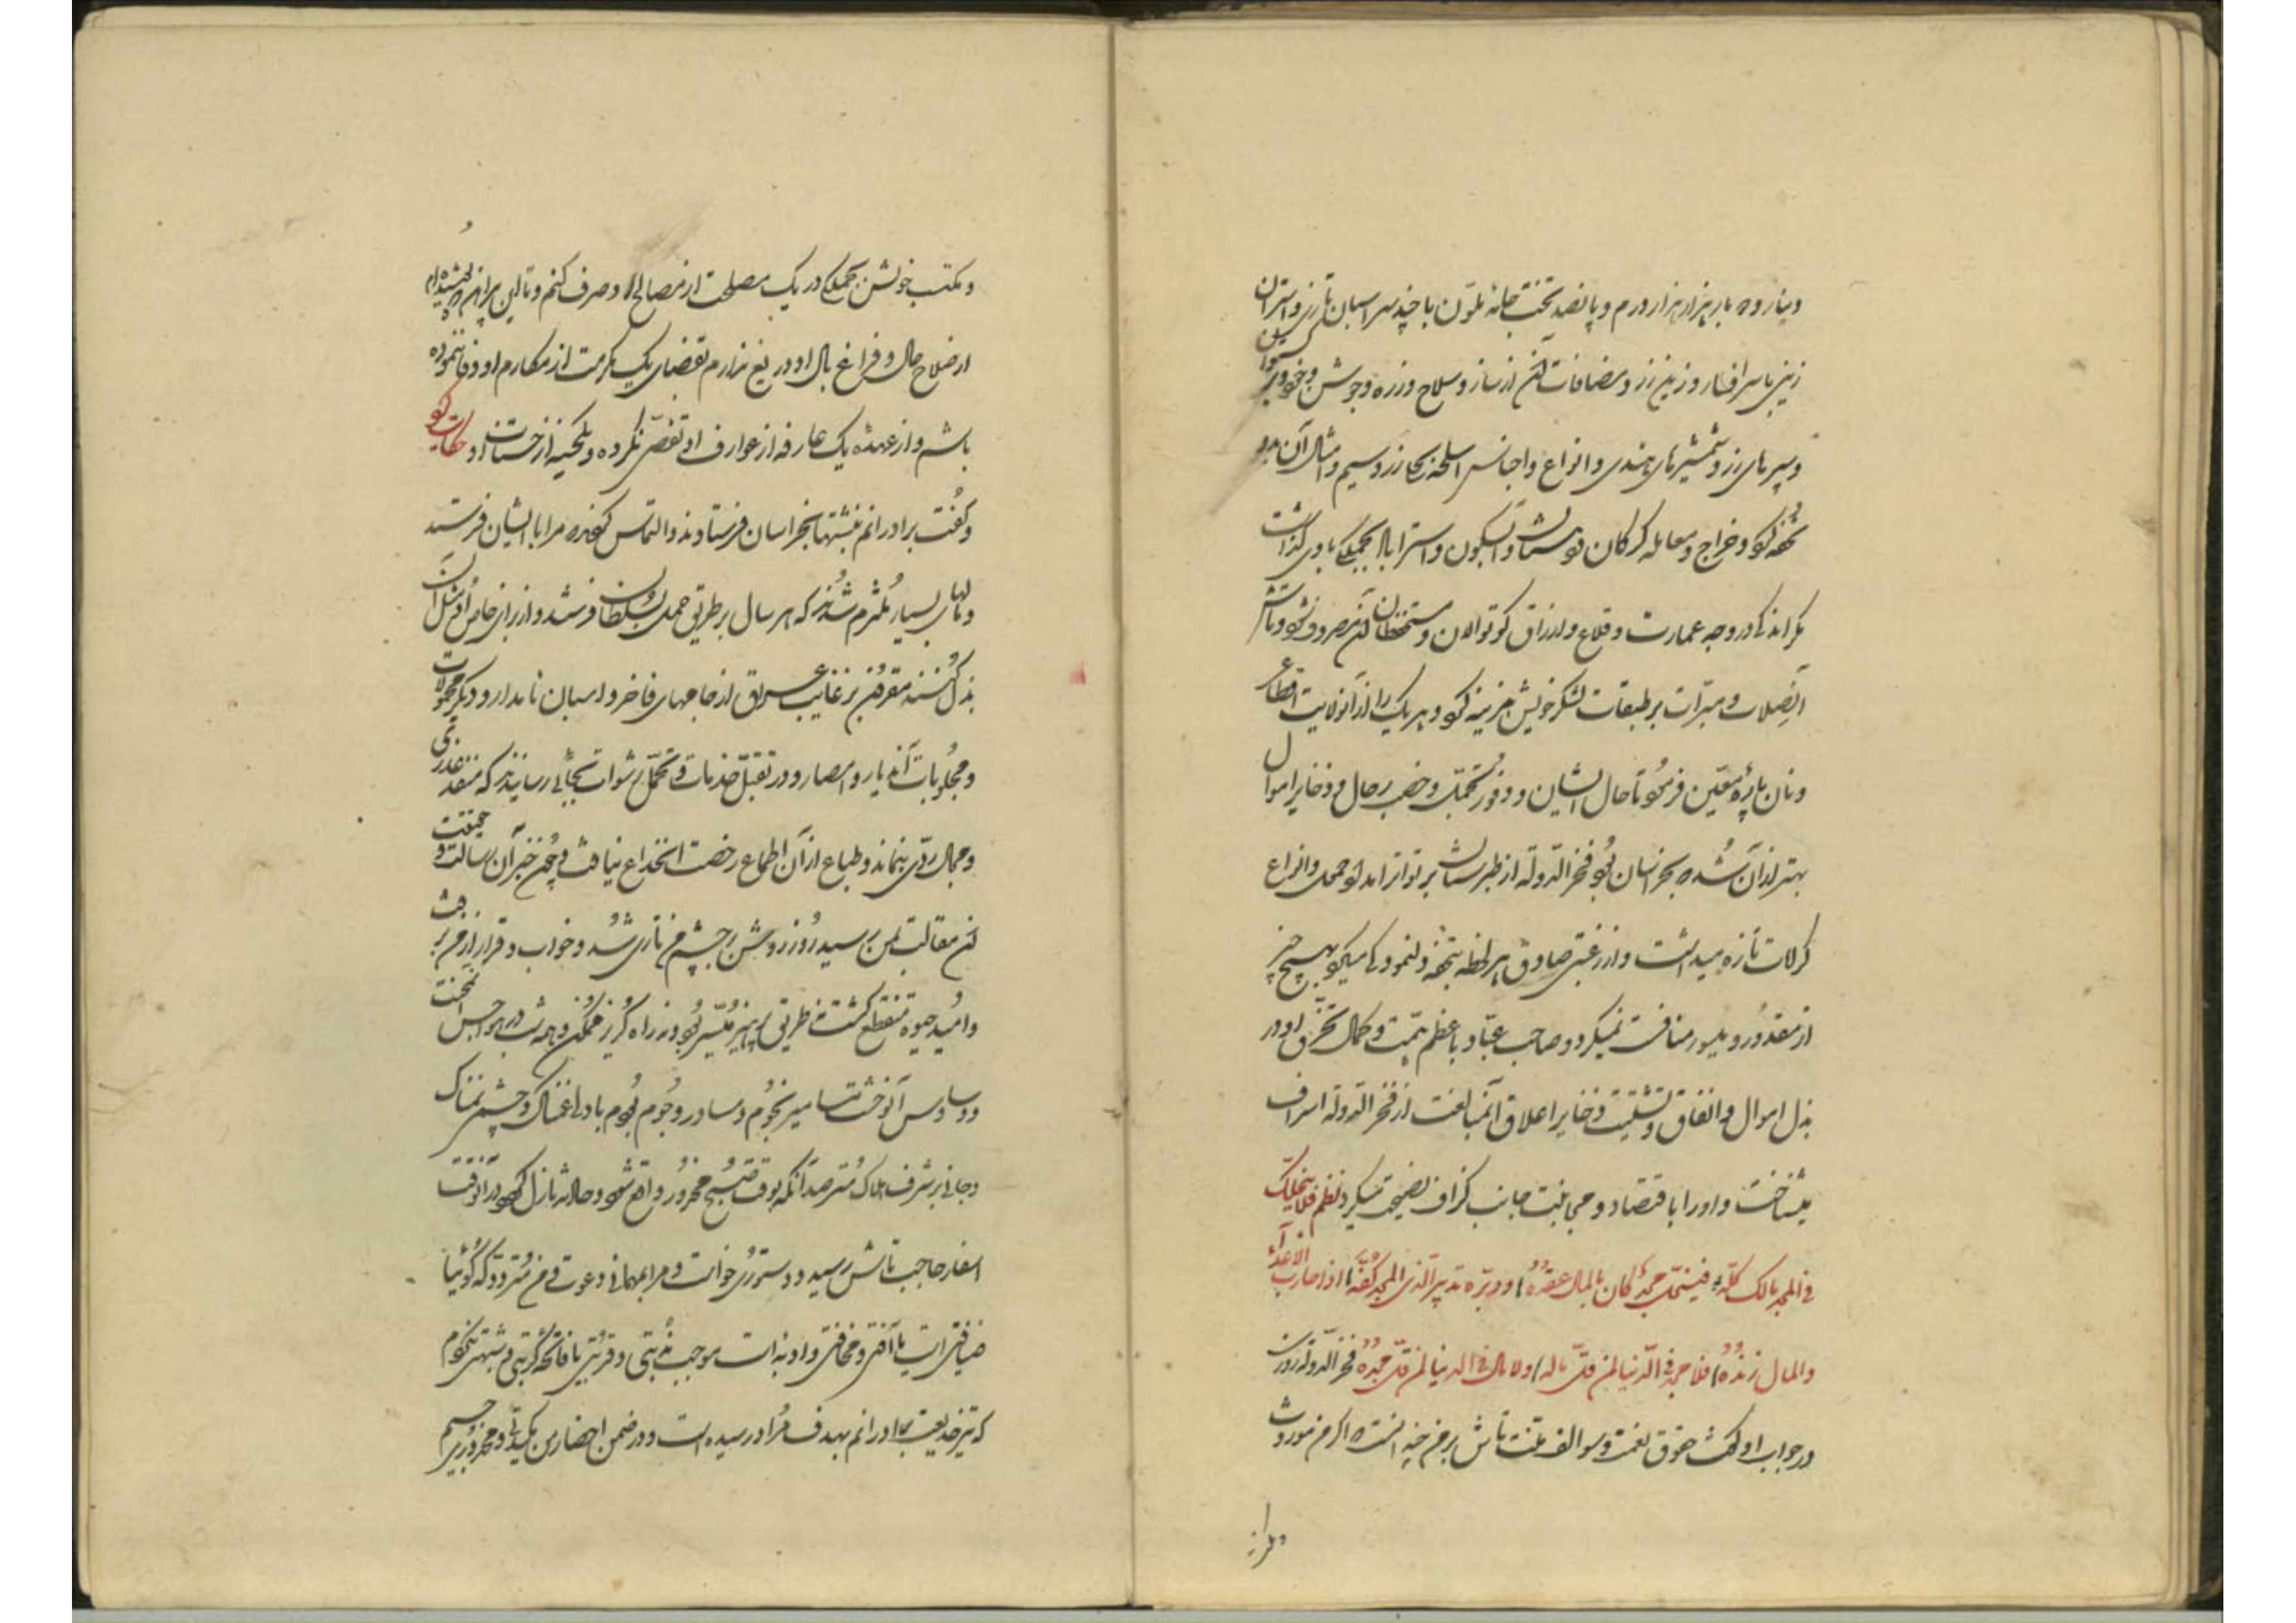 دینار و ده بار هزار هزار درم و پانصد تخت جامهٔ ملوّن با چند سر اسبان تازی و استران
زینی با سر افسار و زین زر و مضافات آن از ساز و سلاح و زره و جوشن و خود و
و سپرهای زر و شمشیرهای هندی و انواع و اجناس اسلحه بکار زر و سیم و امثال آن بدو
تحفه کرد و خراج و معامله گرگان و دهستان و آبسکون و استراباد بجملگی بدو گذاشت
مگر اندکی در وجه عمارت و قلاع و ارزاق کوتوالان و مستحفظان آن مصروف شود و تاش
آن صلات و مبرّات بر طبقات لشکر خویش هزینه کرد و هر یک را از آن ولایت اقطاع
و نان پاره معیّن فرمود تا حال ایشان و وفور تجمّل و خصب رحال و ذخایر اموال
بهتر از آن شد که بخراسان بود فخر الدوله از طبرستان بر تواتر امداد حمل و انواع
کرامات تازه میداشت و از رغبتی صادق هر لحظه بتحفه دلنمودگی میکرد بهیچ چیز
از مقدور و میسور منافست نمیکرد و صاحب عبّاد با عظم همّت و کمال تخرّق او در
بذل اموال و انفاق و تشتیت ذخایر اعلاق آن مبالغت از فخر الدوله اسراف
میشناخت و او را با قتصاد و مجانبت جانب گزاف نصیحت میکرد نظم فلا ینحلل
فی المجد مالک کلّه فینحلّ مجد کان بالمال عقده و دبّره تدبیر الّذی المجد کفّه اذا حارب الاعداء
والمال زنده فلا مجد فی الدّنیا لمن قلّ ماله ولا مال فی الدنیا لمن قلّ مجده فخر الدوله روزی
در جواب او گفت حقوق نعمت و سوالف منّت تاش بر من چندانست که اگر من موروث
و مکتسب خویش جملگی در یک مصلحت از مصالح او صرف کنم و تا این پیراهن که پوشیده‌ام
از صلاح حال و فراغ بال او دریغ ندارم بقضای یک مکرمت از مکارم او وفا ننموده
باشم و از عهده یک عارفه از عوارف او تفصّی نکرده و یکی از حسنات او حکایت کرد
و گفت برادرانم نبشتها بخراسان فرستادند و التماس کردند که مرا با ایشان فرستند
و مالهای بسیار ملتزم شدند که هر سال بر طریق حمل بسلطان فرستند و از برای خاص او مثل آن
بذل کنند مقرون بر غایب عراق از جامهای فاخر و اسبان نامدار و دیگر محمولات
و مجلوبات آن دیار و امصار و در تقبّل خدمات و تحمّل رشوات بجائی رسانیدند که منفذ عذری
و مجال ردّی نماند و طباع از آن اطماع رخصت انخداع نیافت و چون خبر آن رسالت و حقیقت
آن مقالت بمن رسید روز روشن بر چشم من تاری شد و خواب و قرار از من برفت
و امید حیوة منقطع گشت نه طریق پرهیز میسّر بود و نه راه گریز ممکن و همه شب در هواجس محنت
و وساوس آن وحشت مسامیر نجوم و مساور وجوم بودم با دلی غمناک و چشمی نمناک
و جانی بر شرف هلاک مترصد آنکه بوقت صبح محذور واقع شود و حادثه نازل گردد در آن وقت
اسفار حاجب تاش رسید و دستوری خواست و مرا بمهمانی دعوت و من متردد که گوئیا
ضیافتی است یا آفتی و مخافتی و ادبه است موجب ندبتی و قربتی یا فاتحه کربتی و متهم بودم
که تیر خدیعت برادرانم بهدف مراد رسیده است و در ضمن احضار من مکیدتی و محذوری
و مرا